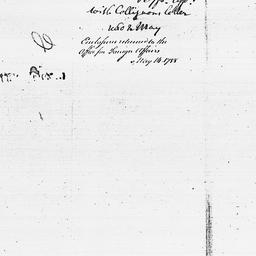 with Collignons letter
recd 2 May
Enclosure returned to the
Office for Foreign Affairs
May 14. 1788